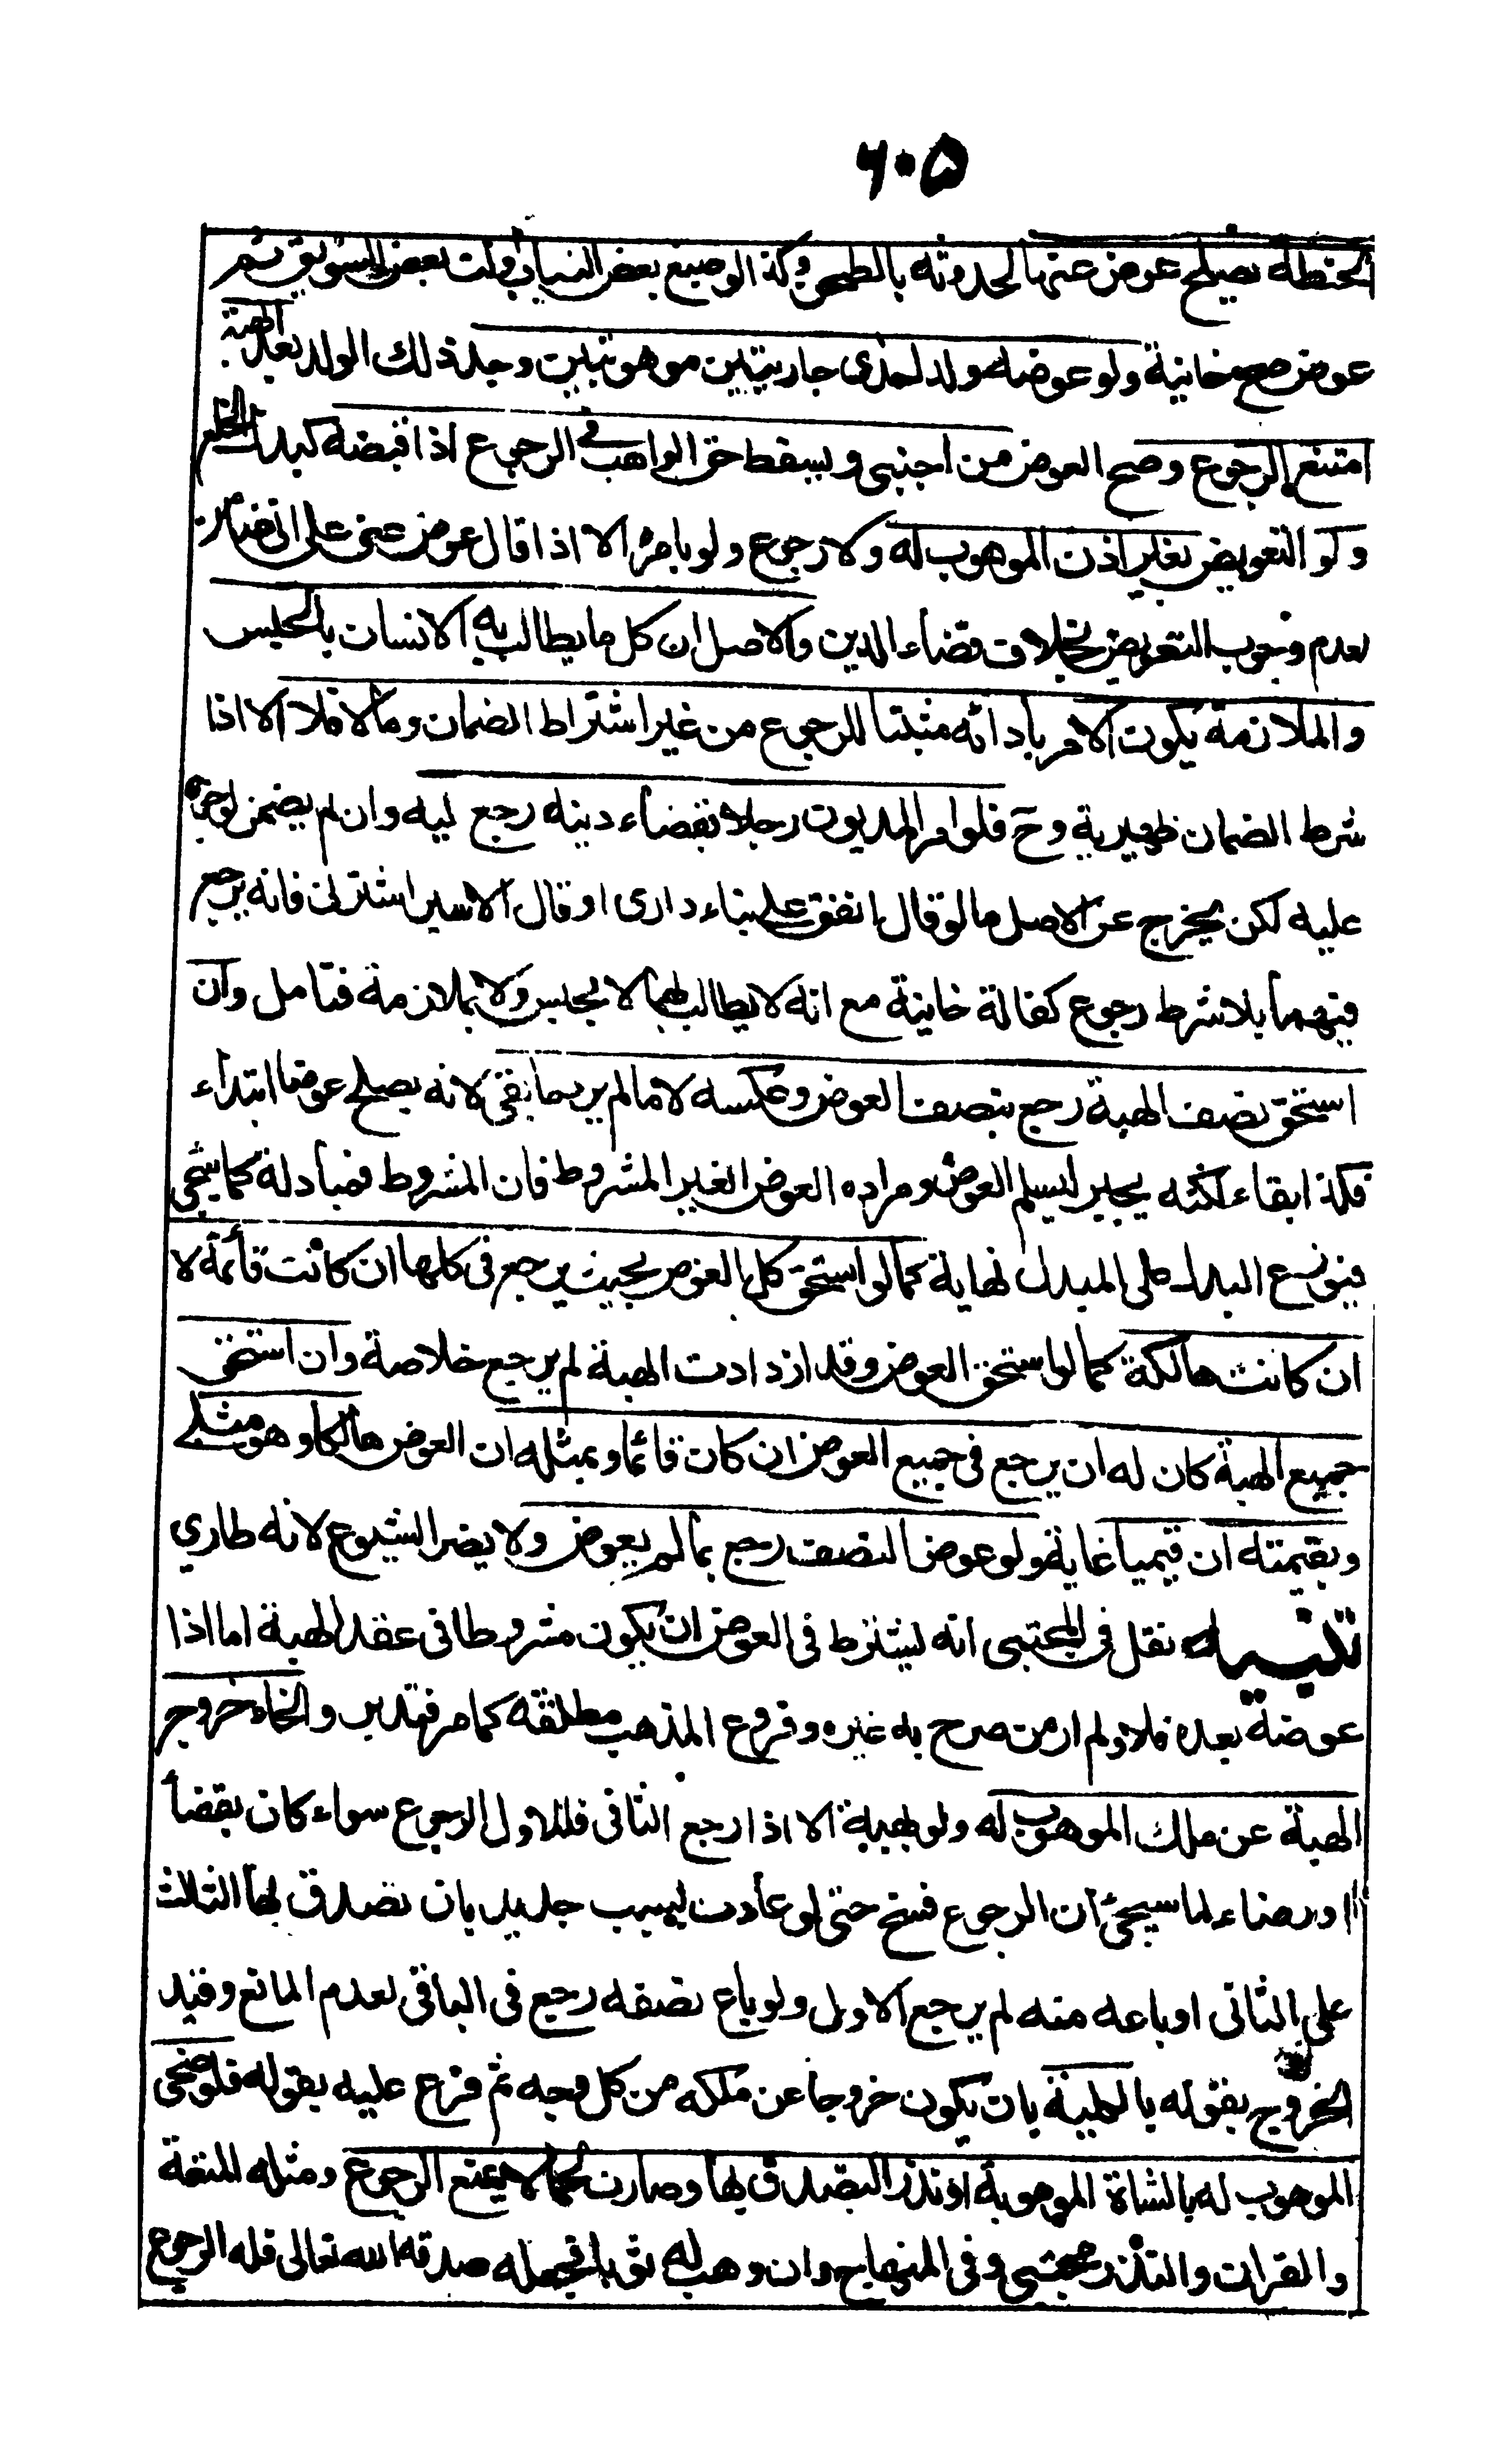 ٦٠٥
الحنطة يصلح عوض عنها لحدوثه بالطحن وكذا لو صبغ بعض الثياب ولت بعض السويق ثم
عوض صح خانية ولو عوضه ولد احدى جاريتين موهوبتين وجد ذلك الولد بعد الهبة
امتنع الرجوع وصح العوض من اجنبى ويسقط حق الواهب فى الرجوع اذا قبضه كبدل الخلع
ولو التعويض بغير اذن الموهوب له ولا رجوع ولو بامره الا اذا قال عوض عنى على انى ضامن
لعدم وجوب التعويض بخلاف قضاء الدين والاصل ان كل ما يطالب به الانسان بالحبس
والملازمة يكون الامر بادائه مثبتا للرجوع من غير اشتراط الضمان وما لا فلا الا اذا
شرط الضمان ظهيرية وح فلو امر المديون رجلا بقضاء دينه رجع ليه وان لم يضمن لوجوبه
عليه لكن يخرج عن الاصل ما لو قال انفق على بناء دارى او قال الاسير اشترنى فانه يرجع
فيهما بلا شرط رجوع كفالة خانية مع انه لا يطالب بهما لا بحبس ولا بملازمة فتامل وان
استحق نصف الهبة رجع بنصف العوض وعكسه لا ما لم يرد ما بقى لانه يصلح عوضا ابتداء
فكذا بقاء لكنه يخير ليسلم العوض ومراده العوض الغير المشروط فان المشروط فمبادلة كما سيجئ
فيوزع البدل على المبدل نهاية كما لو استحق كل العوض بحيث يرجع فى كلها ان كانت قائمة لا
ان كانت هالكة كما لو استحق العوض وقد ازدادت الهبة لم يرجع خلاصة وان استحق
جميع الهبة كان له ان يرجع فى جميع العوض ان كان قائما وبمثله ان العوض هالكا وهو مثلى
وبقيمته ان قيميا غاية ولو عوض النصف رجع بما لم يعوض ولا يضر الشيوع لانه طارى
تنبيه نقل فى المجتبى انه يشترط فى العوض ان يكون مشروطا فى عقد الهبة اما اذا
عوضه بعده فلا ولم ار من صرح به غيره وفروع المذهب مطلقة كما مر فتدبر والخاء خروج
الهبة عن ملك الموهوب له ولو بهبة الا اذا رجع الثانى فللاول الرجوع سواء كان بقضأ
او رضاء لما سيجئ ان الرجوع فسخ حتى لو عادت بسبب جديد بان تصدق بها الثالث
على الثانى او باعه منه لم يرجع الاول ولو باع نصفه رجع فى الباقى لعدم المانع وقيد
الخروج بقوله بالكلية بان يكون خروجا عن ملكه من كل وجه ثم فرع عليه بقوله فلو ضحى
الموهوب له بالشاة الموهوبة او نذر التصدق بها وصارت لحما لا يمتنع الرجوع ومثله المتعة
والقران والنذر مجتبى وفى المنهاج وان وهب له ثوبا فجعله صدقة لله تعالى فله الرجوع